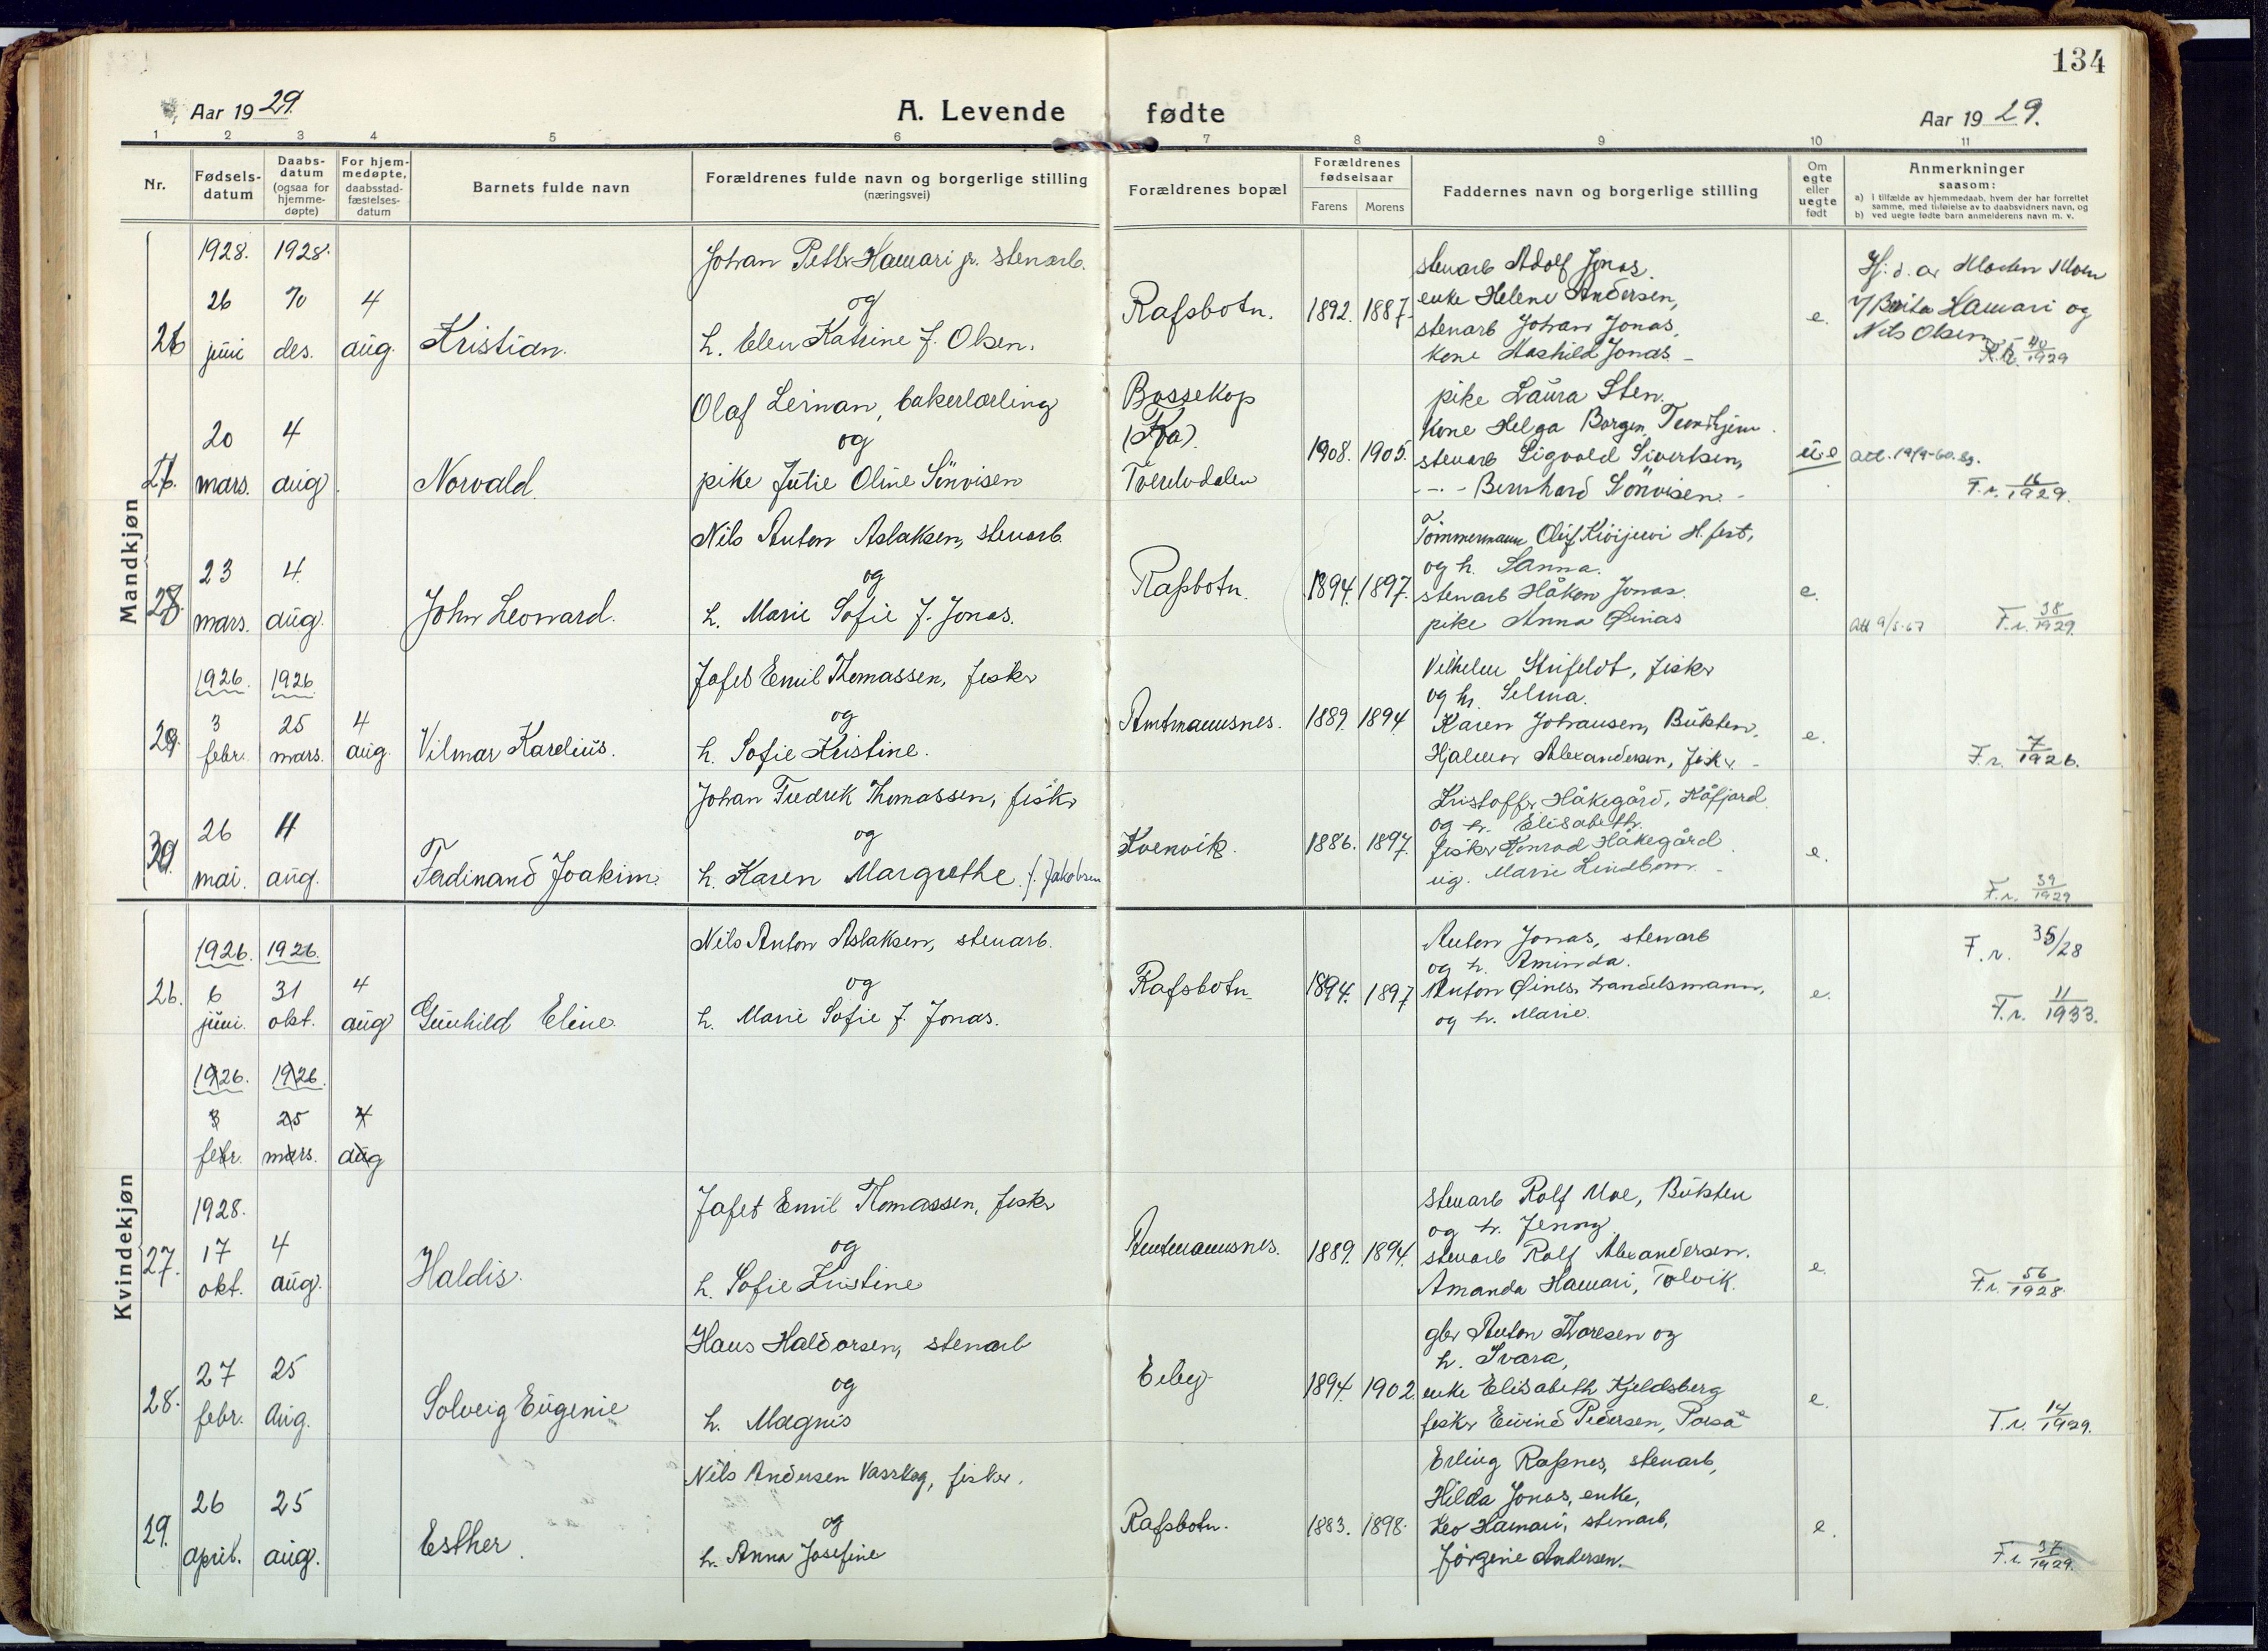 134
Aar 1929.
A. Levende fødte
Aar 1929.
1 2 3 4 5 6 7 8 9 10 11
Nr.
Fødsels-
datum
Daabs-
datum
(ogsaa for
hjemme-
døpte)
For hjem-
medøpte,
daabsstad-
fæstelses-
datum
Barnets fulde navn
Forældrenes fulde navn og borgerlige stilling
(næringsvei)
Forældrenes bopæl
Forældrenes
fødselsaar
Farens Morens
Faddernes navn og borgerlige stilling
Om
egte
eller
uegte
født
Anmerkninger
saasom:
a) I tilfælde av hjemmedaab, hvem der har forrettet
samme, med tilføielse av to daabsvidners navn, og
b) ved uegte fødte barn anmelderens navn m. v.
Mandkjøn
26
1928. 26 juni
1928. 70 des.
4 aug.
Kristian.
Johan Petter Hamari jr. stenarb.
og
h. Elen Katrine f. Olsen.
Rafsbotn.
1892. 1887.
stenarb Adolf Jonas.
enke Helene Andersen,
stenarb Johan Jonas,
kone Jonas.
e.
Hamari og
Nils Olsen
40/1929
27.
20 mars.
4 aug.
Norvald.
Olaf Leinan, bakerlærling
og
pike Julie Oline Sönvisen
Bossekop
(Fa).
Tverelvdalen
1908. 1905.
pike Laura Sten.
Kone Helga Borgen, Trondhjem.
stenarb Sigvald Sivertsen,
- - - Bernhard Sönvisen.
u.e
F.r. 16/1929.
28.
23 mars.
4. aug.
John Leonard.
Nils Anton Aslaksen, stenarb.
og
h. Marie Sofie f. Jonas.
Rafsbotn.
1894. 1897.
Tömmermann H.fest,
og h. Sanna.
stenarb Håkon Jonas.
pike Anna Øinas
e.
Att 9/5-67
F.r. 38/1929.
29.
1926. 3 febr.
1926. 25 mars.
4 aug.
Vilmar Karelius.
Jafet Emil Thomassen, fisker
og
h. Sofie Kristine.
Amtmannsnes.
1889. 1894
Vilhelm Strifeldt, fisker
og h. Selma.
Karen Johansen, Bukten.
Hjalmar Alexandersen, fisker
e.
F.r. 7/1926.
30.
26 mai.
4 aug.
Ferdinand Joakim.
Johan Fredrik Thomassen, fisker
og
h. Karen Margrethe f. Jakobsen
Kvenvik.
1886. 1897.
Kristoffer Håkegård, Kåfjord.
og h. Elisabeth.
fisker Konrad Håkegård
ug. Marie Lindbom.
e.
F.r. 39/1929
Kvindekjøn
26.
1926. 6 juni.
1926. 31 okt.
4 aug
Gunhild Eline.
Nils Anton Aslaksen, stenarb.
og
h. Marie Sofie f. Jonas.
Rafsbotn
1894. 1897
Anton Jonas, stenarb
og h. Aminda.
Anton Øines. handelsmann,
og h. Marie.
e.
F.r. 35/28
F.r. 11/1933.
1926. 3 febr.
1926. 25 mars.
4 aug
27.
1928. 17 okt.
4 aug.
Haldis.
Jafet Emil Thomassen, fisker
og
h. Sofie Kristine
Amtmannsnes.
1889. 1894.
stenarb Rolf Moe, Bukten
og h. Jenny
stenarb Rolf Alexandersen.
Amanda Hamari, Tolvik.
e.
F.r. 56/1928.
28.
27 febr.
25 Aug.
Solveig Eugenie
Hans Haldorsen, stenarb
og
h. Magnis
Eiby
1894. 1902.
gbr Anton Thoresen og
h. Svara,
enke Elisabeth Kjeldsberg
fisker Eivind Pedersen, Porsa
e.
F.r. 14/1929.
29.
26 april.
25 aug.
Esther.
Nils Andersen Vasskog, fisker.
og
h. Anna Josefine
Rafsbotn.
1883. 1898.
Erling Rafsnes, stenarb,
Hilda Jonas, enke,
Leo Hamari, stenarb,
Jörgine Andersen.
e.
F.r. 37/1929.